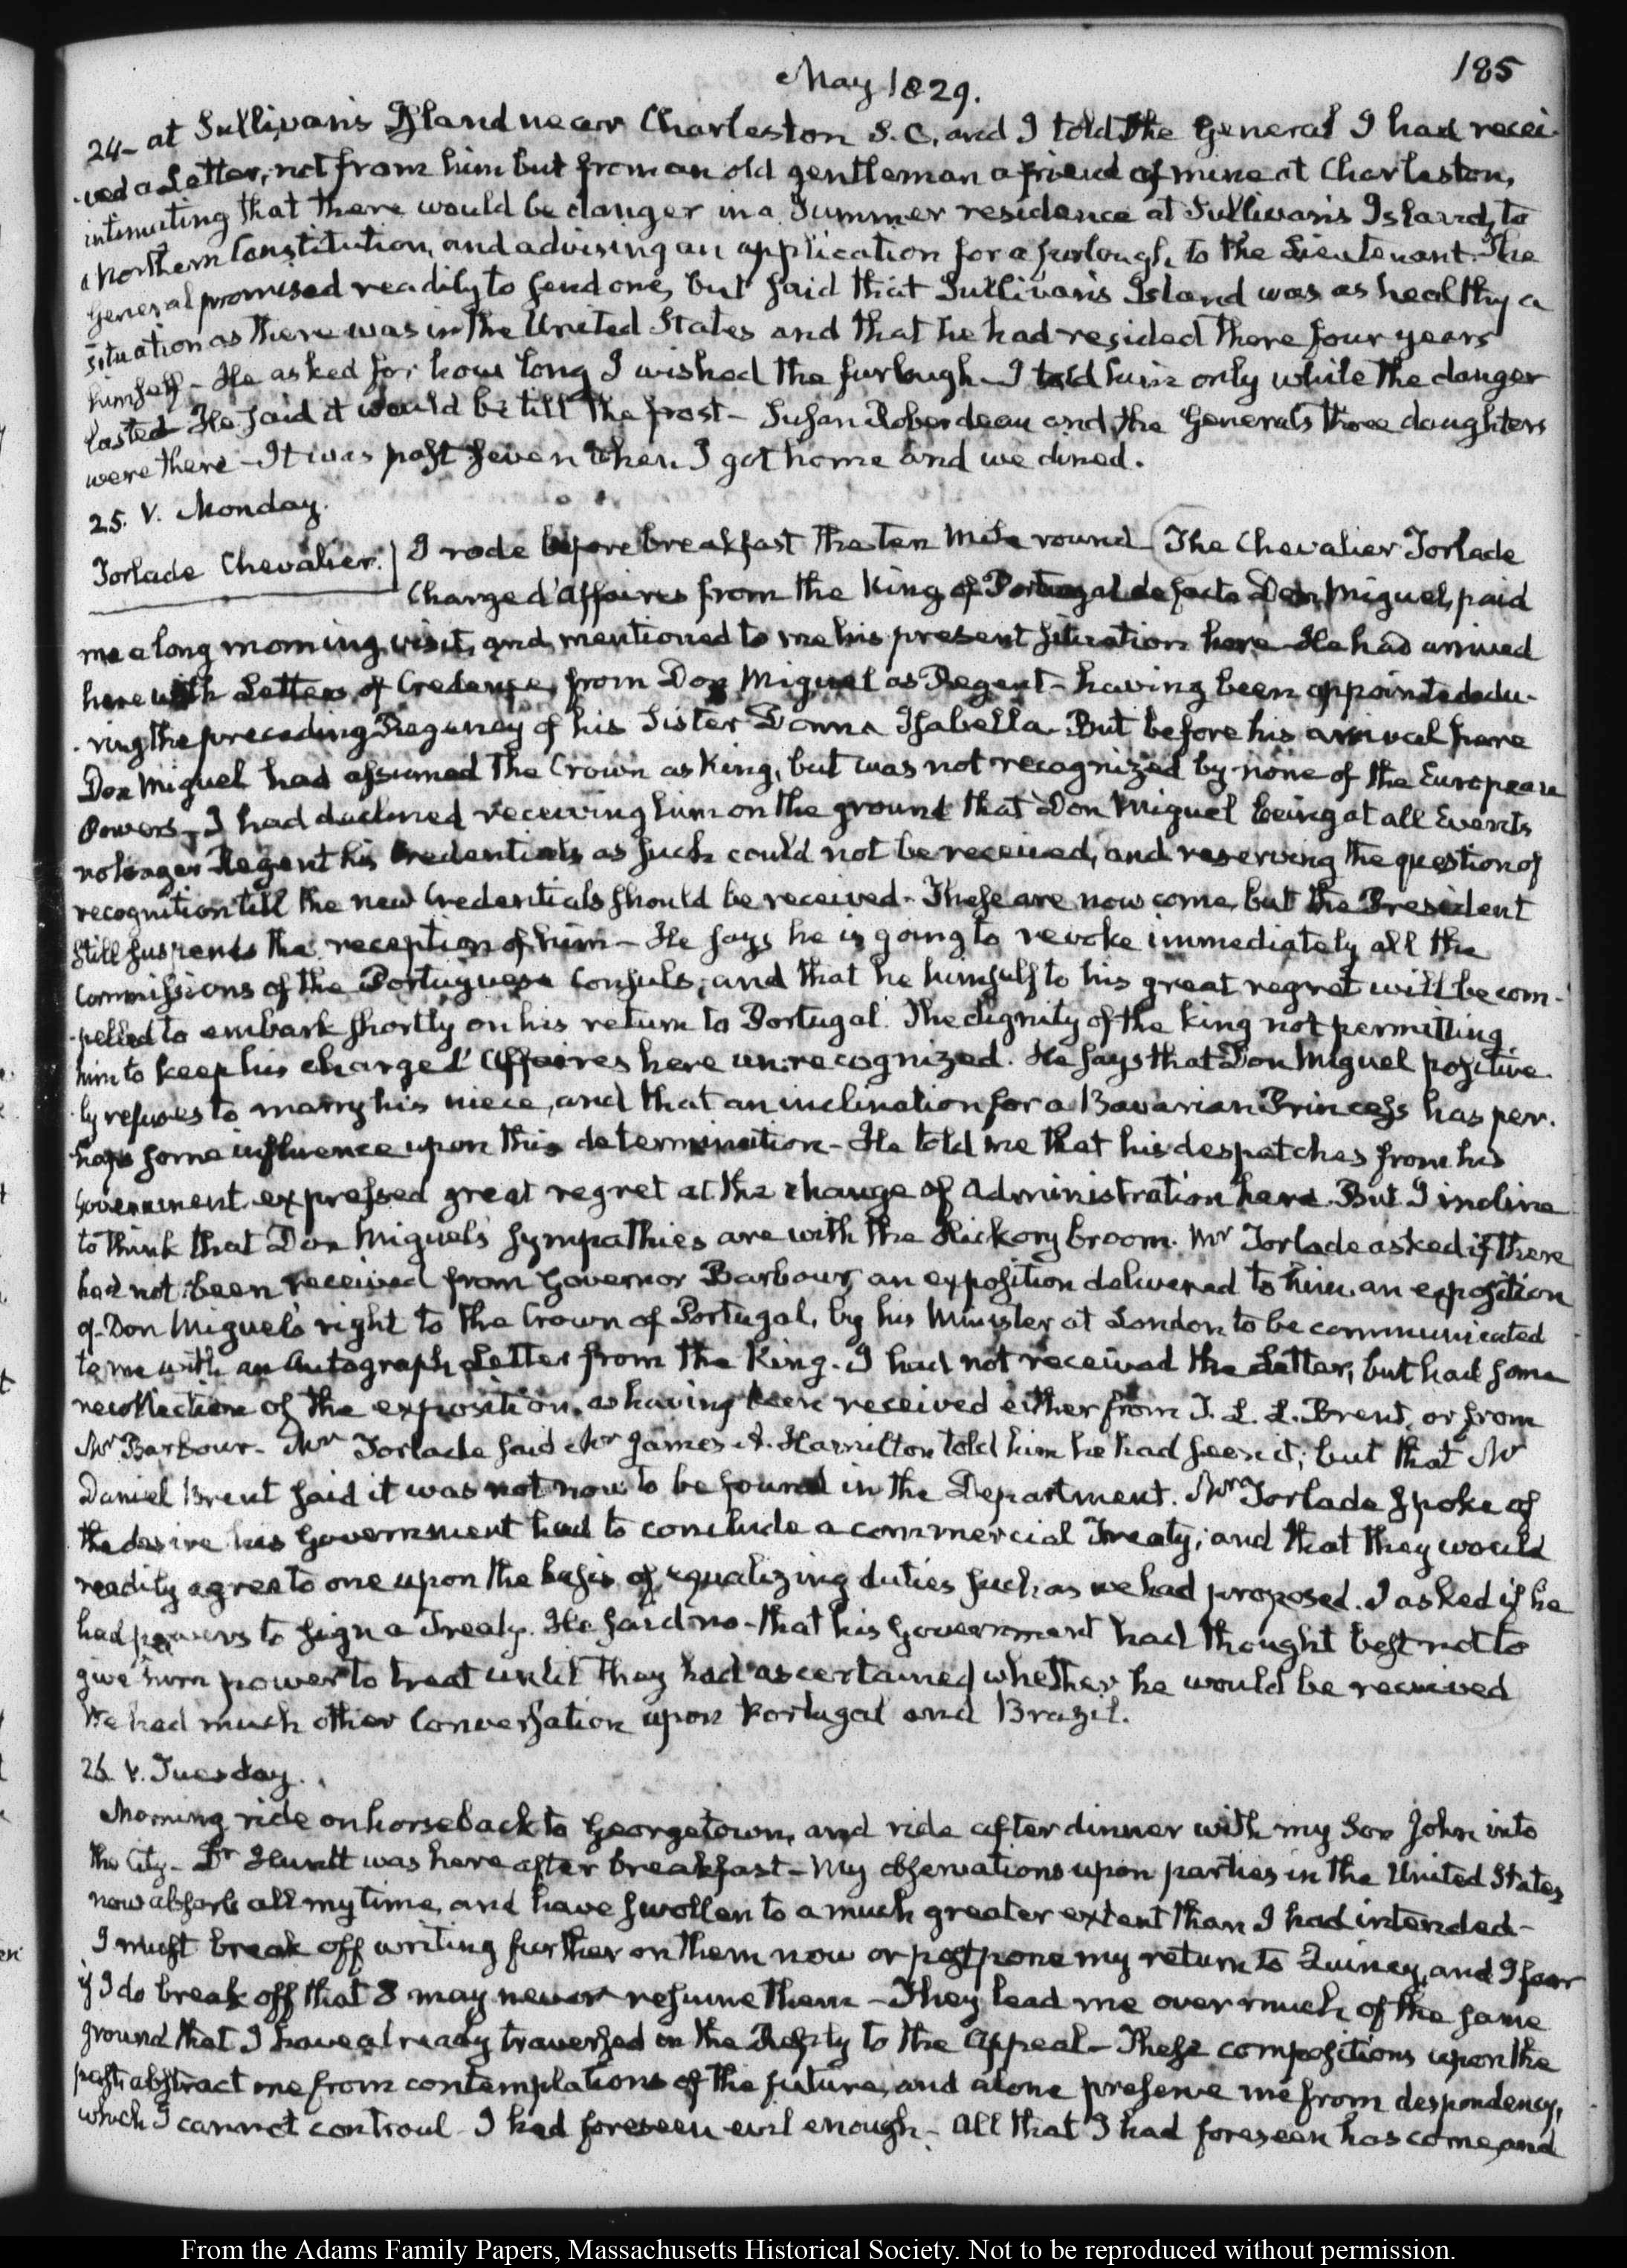 185
May 1829.
24- at Sullivan's Island near Charleston S. C. and I told the General I had recei-
-ved a Letter, not from him but from an old gentleman a friend of mine at Charleston,
intimating that there would be danger in a Summer residence at Sullivan's Island, to
a Northern Constitution, and advising an application for a furlough, to the Lieutenant. The
General promised readily to send one, but said that Sullivan's Island was as healthy a
situation as there was in the United States and that he had resided there four years
himself- He asked for how long I wished the furlough- I told him only while the danger
lasted- He said it would be till the frost- Susan Roberdeau and the General's three daughters
were there- It was past seven when I got home and we dined.
25. V. Monday.
Torlade Chevalier. I rode before breakfast the ten Mile round- The Chevalier Torlade
Chargé d'Affaires from the King of Portugal de facto Don Miguel, paid
me a long morning visit, and mentioned to me his present situation here- He had arrived
here with Letters of Credence, from Don Miguel as Regent- having been appointed du-
-ring the preceding Regency of his Sister Donna Isabella- But before his arrival here
Don Miguel had assumed the Crown as King, but was not recognized by none of the European
Powers- I had declined receiving him on the ground that Don Miguel being at all Events
no longer Regent his Credentials as such could not be received, and reserving the question of
recognition till the new Credentials should be received- These are now come, but the President
still suspends the reception of him- He says he is going to revoke immediately all the
Commissions of the Portuguese Consuls, and that he himself to his great regret will be com-
-pelled to embark shortly on his return to Portugal. The dignity of the King not permitting
him to keep his chargé d'Affaires here unrecognized. He says that Don Miguel positive-
-ly refuses to marry his niece, and that an inclination for a Bavarian Princess has per-
-haps some influence upon this determination- He told me that his despatches from his
Government expressed great regret at the change of Administration here. But I incline
to think that Don Miguel's sympathies are with the Hickory broom. Mr Torlade asked if there
had not been received from Governor Barbour, an exposition delivered to him an exposition
of Don Miguel's right to the Crown of Portugal, by his Minister at London to be communicated
to me with an Autograph Letter from the King. I had not received the Letter, but had some
recollection of the exposition, as having been received either from T. L. L. Brent, or from
Mr Barbour- Mr Torlade said Mr James A. Hamilton told him he had seen it; but that Mr
Daniel Brent said it was not now to be found in the Department. Mr Torlade spoke of
the desire his Government had to conclude a commercial Treaty; and that they would
readily agree to one upon the basis of equalizing duties such as we had proposed. I asked if he
had powers to sign a Treaty. He said no- that his Government had thought best not to
give him power to treat until they had ascertained whether he would be received
We had much other Conversation upon Portugal and Brazil.
26. V. Tuesday.
Morning ride on horseback to Georgetown, and ride after dinner with my Son John into
the City- Dr Huntt was here after breakfast- My observations upon parties in the United States
now absorb all my time, and have swollen to a much greater extent than I had intended-
I must break off writing further on them now or postpone my return to Quincy, and I fear
if I do break off that I may never resume them- They lead me over much of the same
ground that I have already traversed in the Reply to the Appeal- These compositions upon the
past abstract me from contemplations of the future, and alone preserve me from despondency,
which I cannot controul- I had foreseen evil enough- All that I had foreseen has come, and
From the Adams Family Papers, Massachusetts Historical Society. Not to be reproduced without permission.